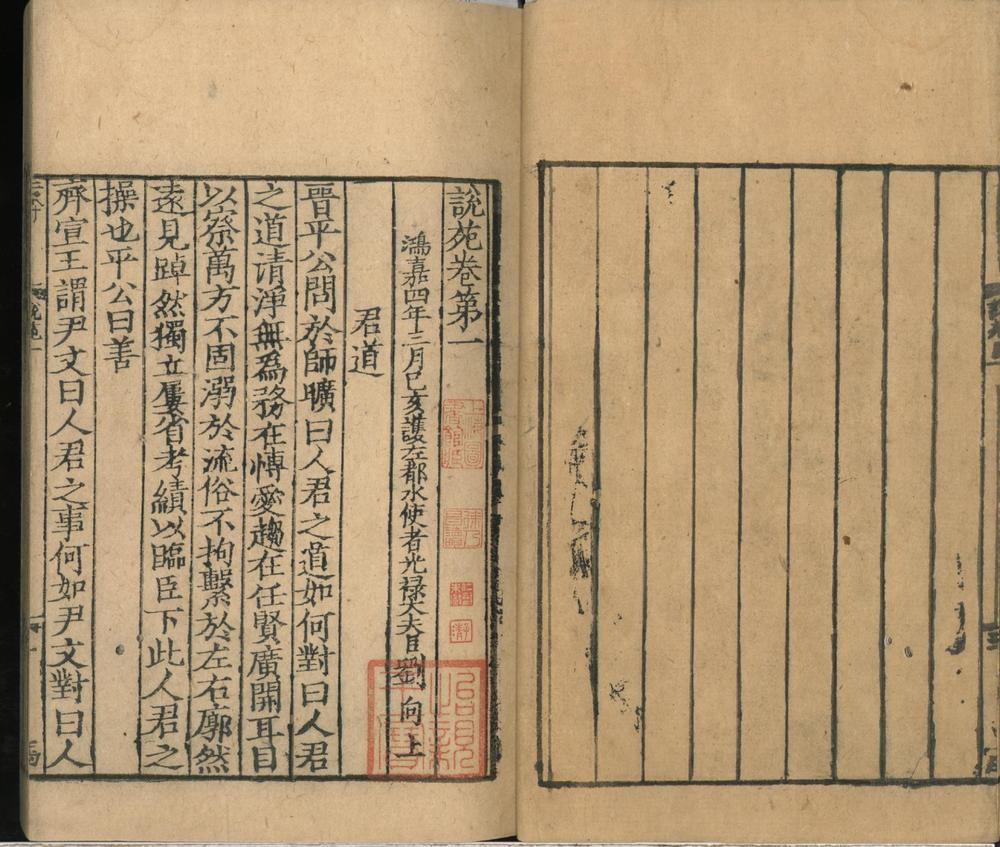 說苑卷第一
鴻嘉四年三月己亥護左都水使者光祿大夫臣劉向上
君道
晉平公問於師曠曰人君之道如何對曰人君
之道清淨無為務在愽愛趨在任賢廣開耳目
以察萬方不固溺於流俗不拘繫於左右廓然
遠見踔然獨立屢省考績以臨臣下此人君之
操也平公曰善
齊宣王謂尹文曰人君之事何如尹文對曰人